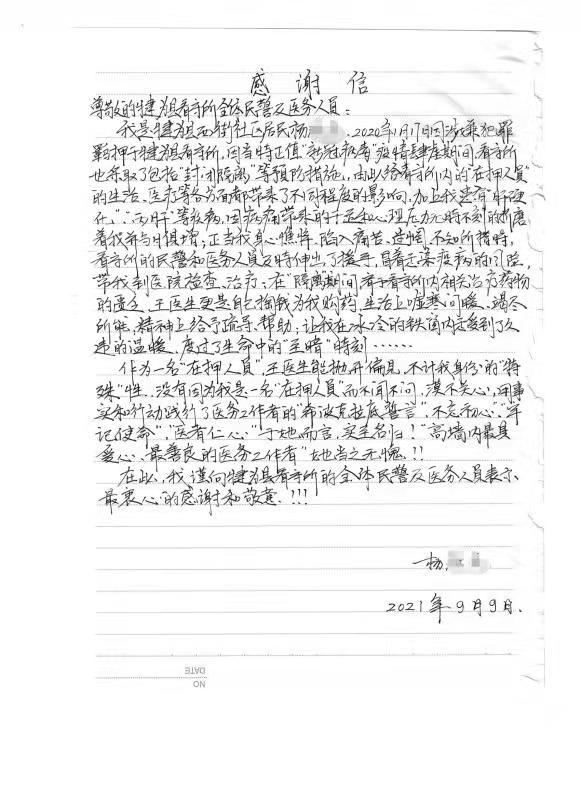 感谢信
尊敬的犍为县看守所全体民警及医务人员：
我是犍为县西街社区居民杨 ，2020年1月17日因涉嫌犯罪
羁押于犍为县看守所，因当时正值“新冠病毒”疫情肆虐期间，看守所
也采取了包括“封闭隔离”等预防措施，由此给看守所内的“在押人员”
的生活、医疗等各方面都带来了不同程度的影响，加上我患有“肝硬
化”、“丙肝”等疾病，因疾病带来的 和心理压力无时不刻的折磨
着我并与日俱增；正当我身心憔悴，陷入痛苦、迷惘、不知所措时，
看守所的民警和医务人员及时伸出了援手，冒着走染疫病的风险，
带我到医院检查、治疗；在“隔离”期间看于看守所内相关治疗药物
的匮乏，王医生更是自己掏钱为我购药，生活上嘘寒问暖，竭尽
所能，精神上给予疏导、帮助，让我在冰冷的铁窗内感受到了久
违的温暖，度过了生命中的“至暗”时刻……
作为一名“在押人员”，王医生能抛开偏见，不计我身份的“特
殊”性，没有因为我是一名“在押人员”而不闻不问，漠不关心，用事
实和行动践行了医务工作者的“希波克拉底誓言”，“不忘初心”、“牢
记使命”，“医者仁心”，于她而言，实至名归！“高墙内最具
爱心、最善良的医务工作者”她当之无愧！！
在此，我谨向犍为县看守所的全体民警及医务人员表示
最衷心的感谢和敬意！！！
杨
2021年9月9日.
DATE
NO